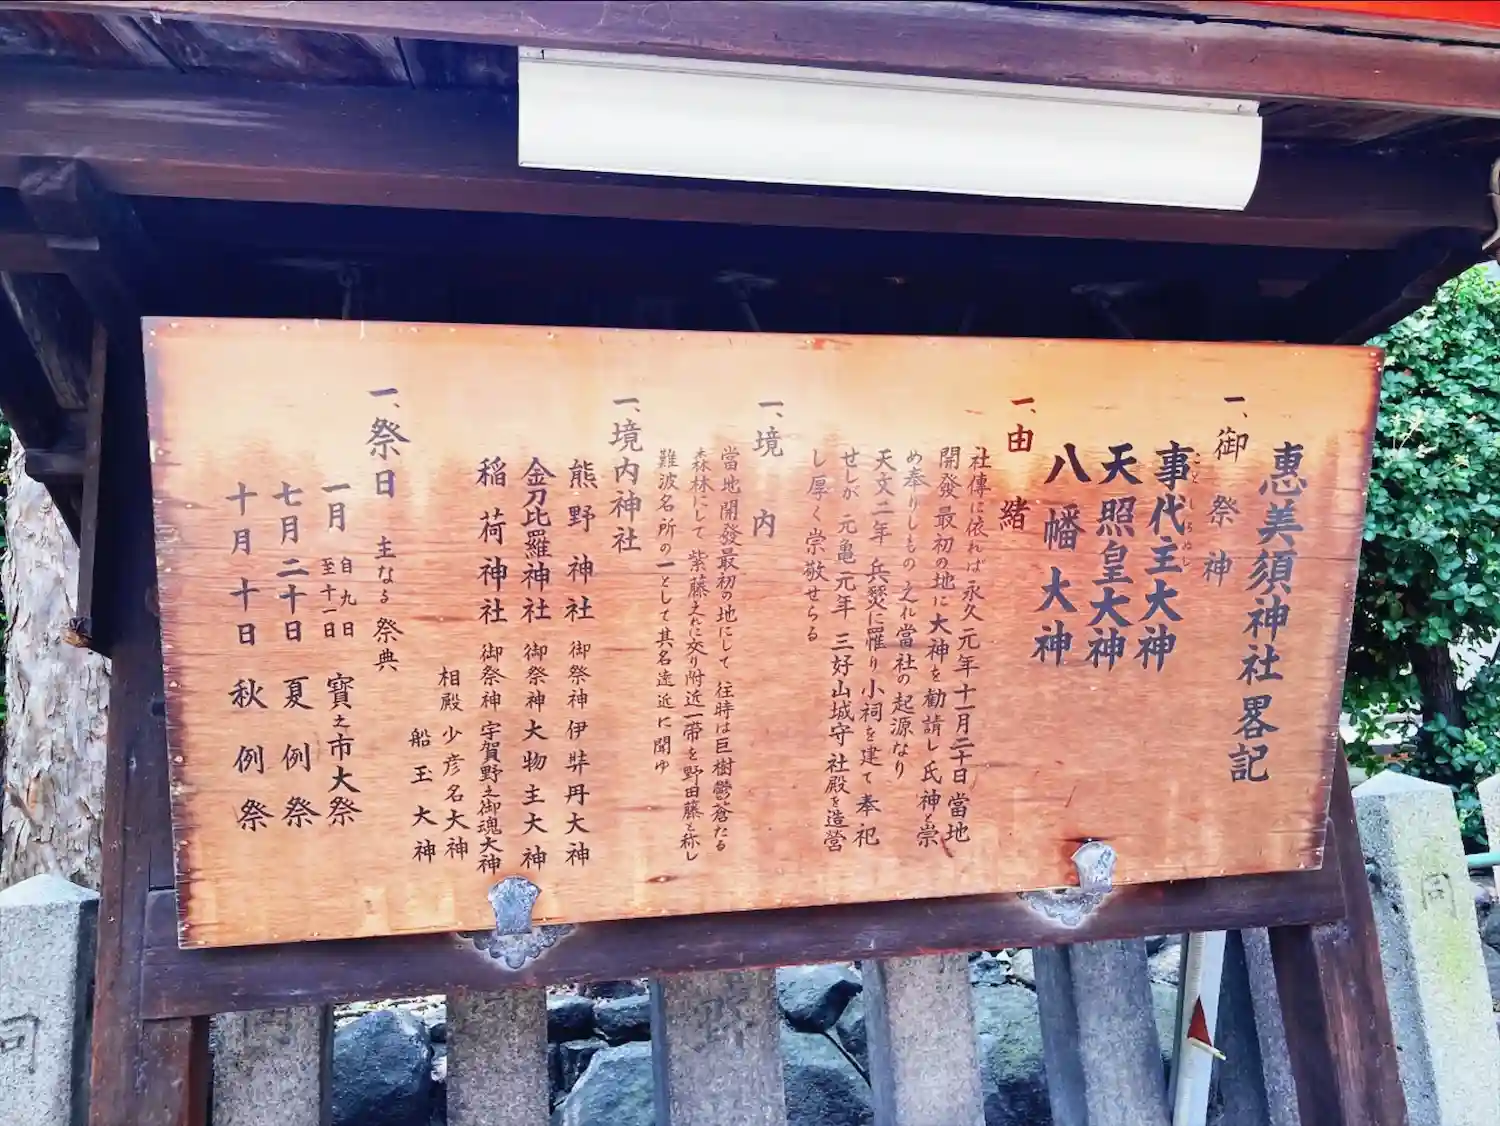 恵美須神社畧記
一、御祭神
事代主大神
ことしろぬし
天照皇大神
八幡大神
一、由緒
社傳に依れば永久元年十一月二十日當地
開發最初の地に大神を勸請し氏神と崇
め奉りしもの之れ當社の起源なり
天文二年 兵燹に罹り小祠を建て奉祀
せしが 元亀元年 三好山城守社殿を造営
し厚く崇敬せらる
一、境内
當地開發最初の地にして 往時は巨樹鬱蒼たる
森林にして 紫藤之れに交り附近一帯を野田藤と称し
難波名所の一として其名遠近に聞ゆ
一、境内神社
熊野神社 御祭神 伊弉丹大神
金刀比羅神社 御祭神 大物主大神
稲荷神社 御祭神 宇賀野之御魂大神
相殿 少彦名大神
船玉大神
一、祭日 主なる祭典
一月 自九日 至十一日 寶之市大祭
七月二十日 夏例祭
十月十日 秋例祭
同